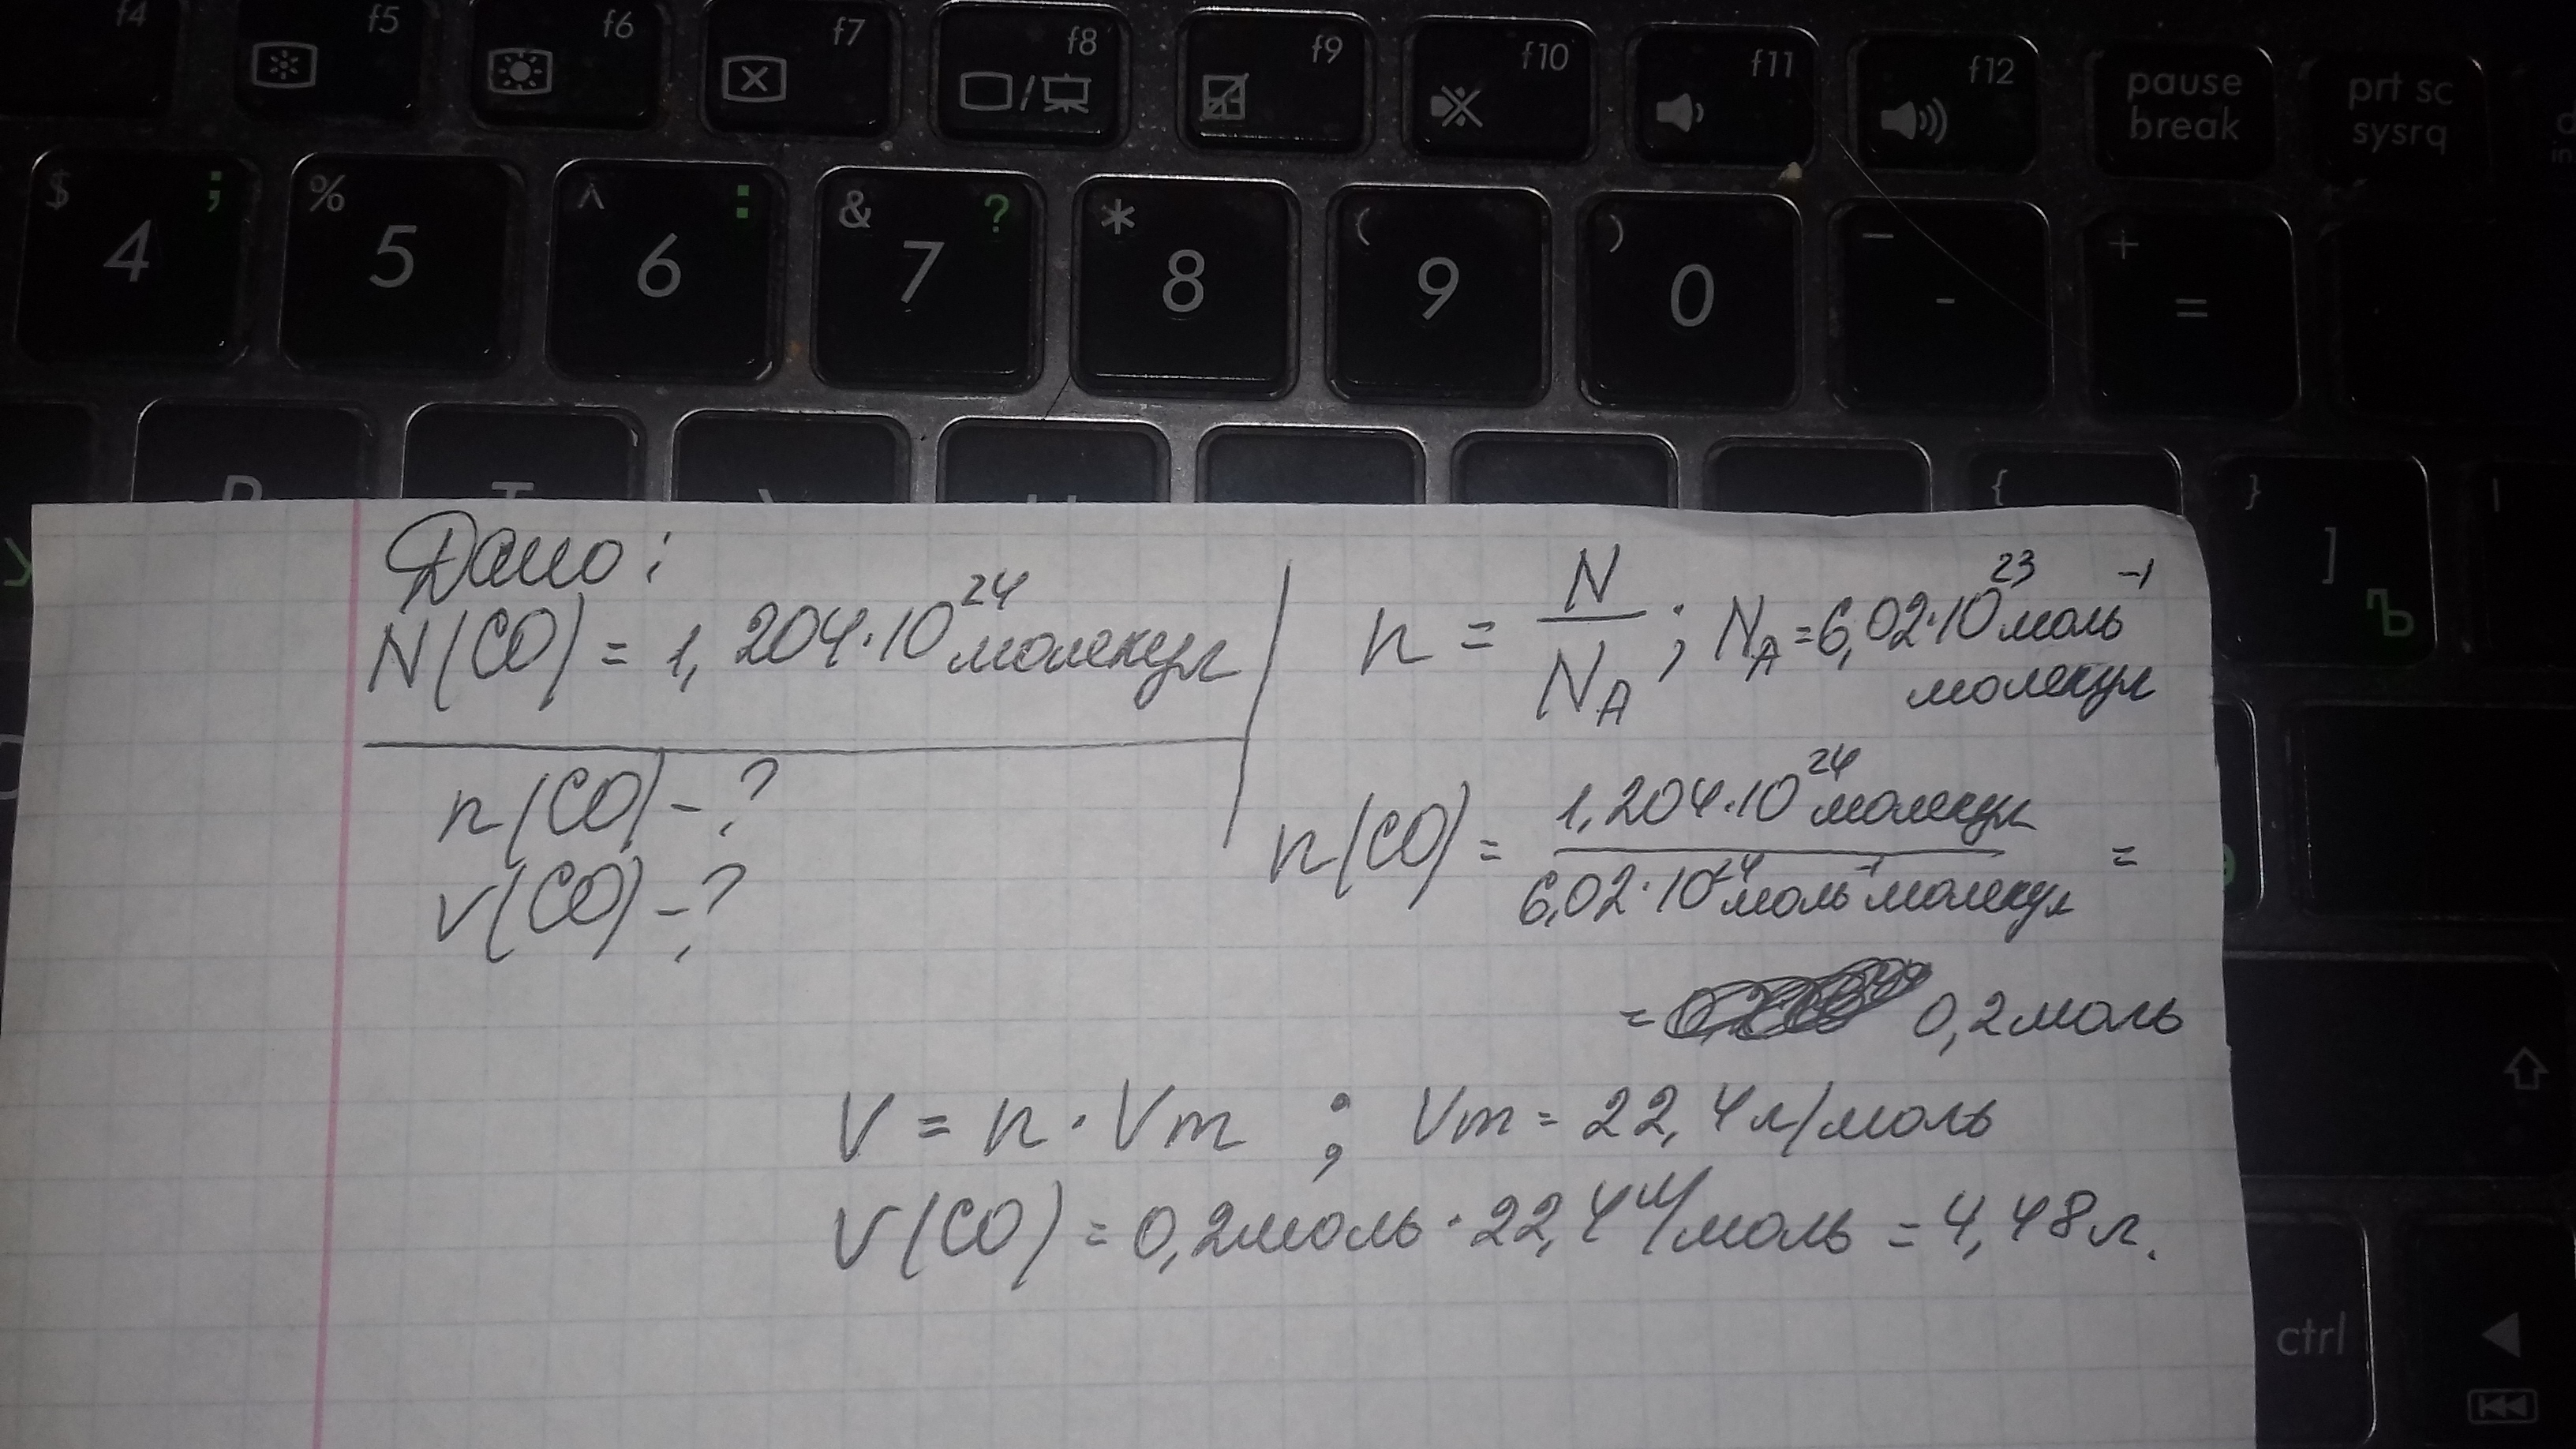 f4 f5 f6 f7 f8 f9 f10 f11 f12 pause break prt sc sysrq
$ 4 ; % 5 ^ 6 : & 7 ? * 8 ( 9 ) 0 _ - + =
{ } ] Ъ
Дано:
N(CO) = 1, 204·10²⁴ молекул
n(CO) - ?
V(CO) - ?
n = N / N_A ; N_A = 6,02·10²³ моль⁻¹
молекул
n(CO) = 1,204·10²⁴ молекул / 6,02·10²⁴ моль⁻¹ молекул =
= 0,2 моль
V = n · Vm ; Vm = 22,4 л/моль
V(CO) = 0,2 моль · 22,4 л/моль = 4,48 л.
ctrl